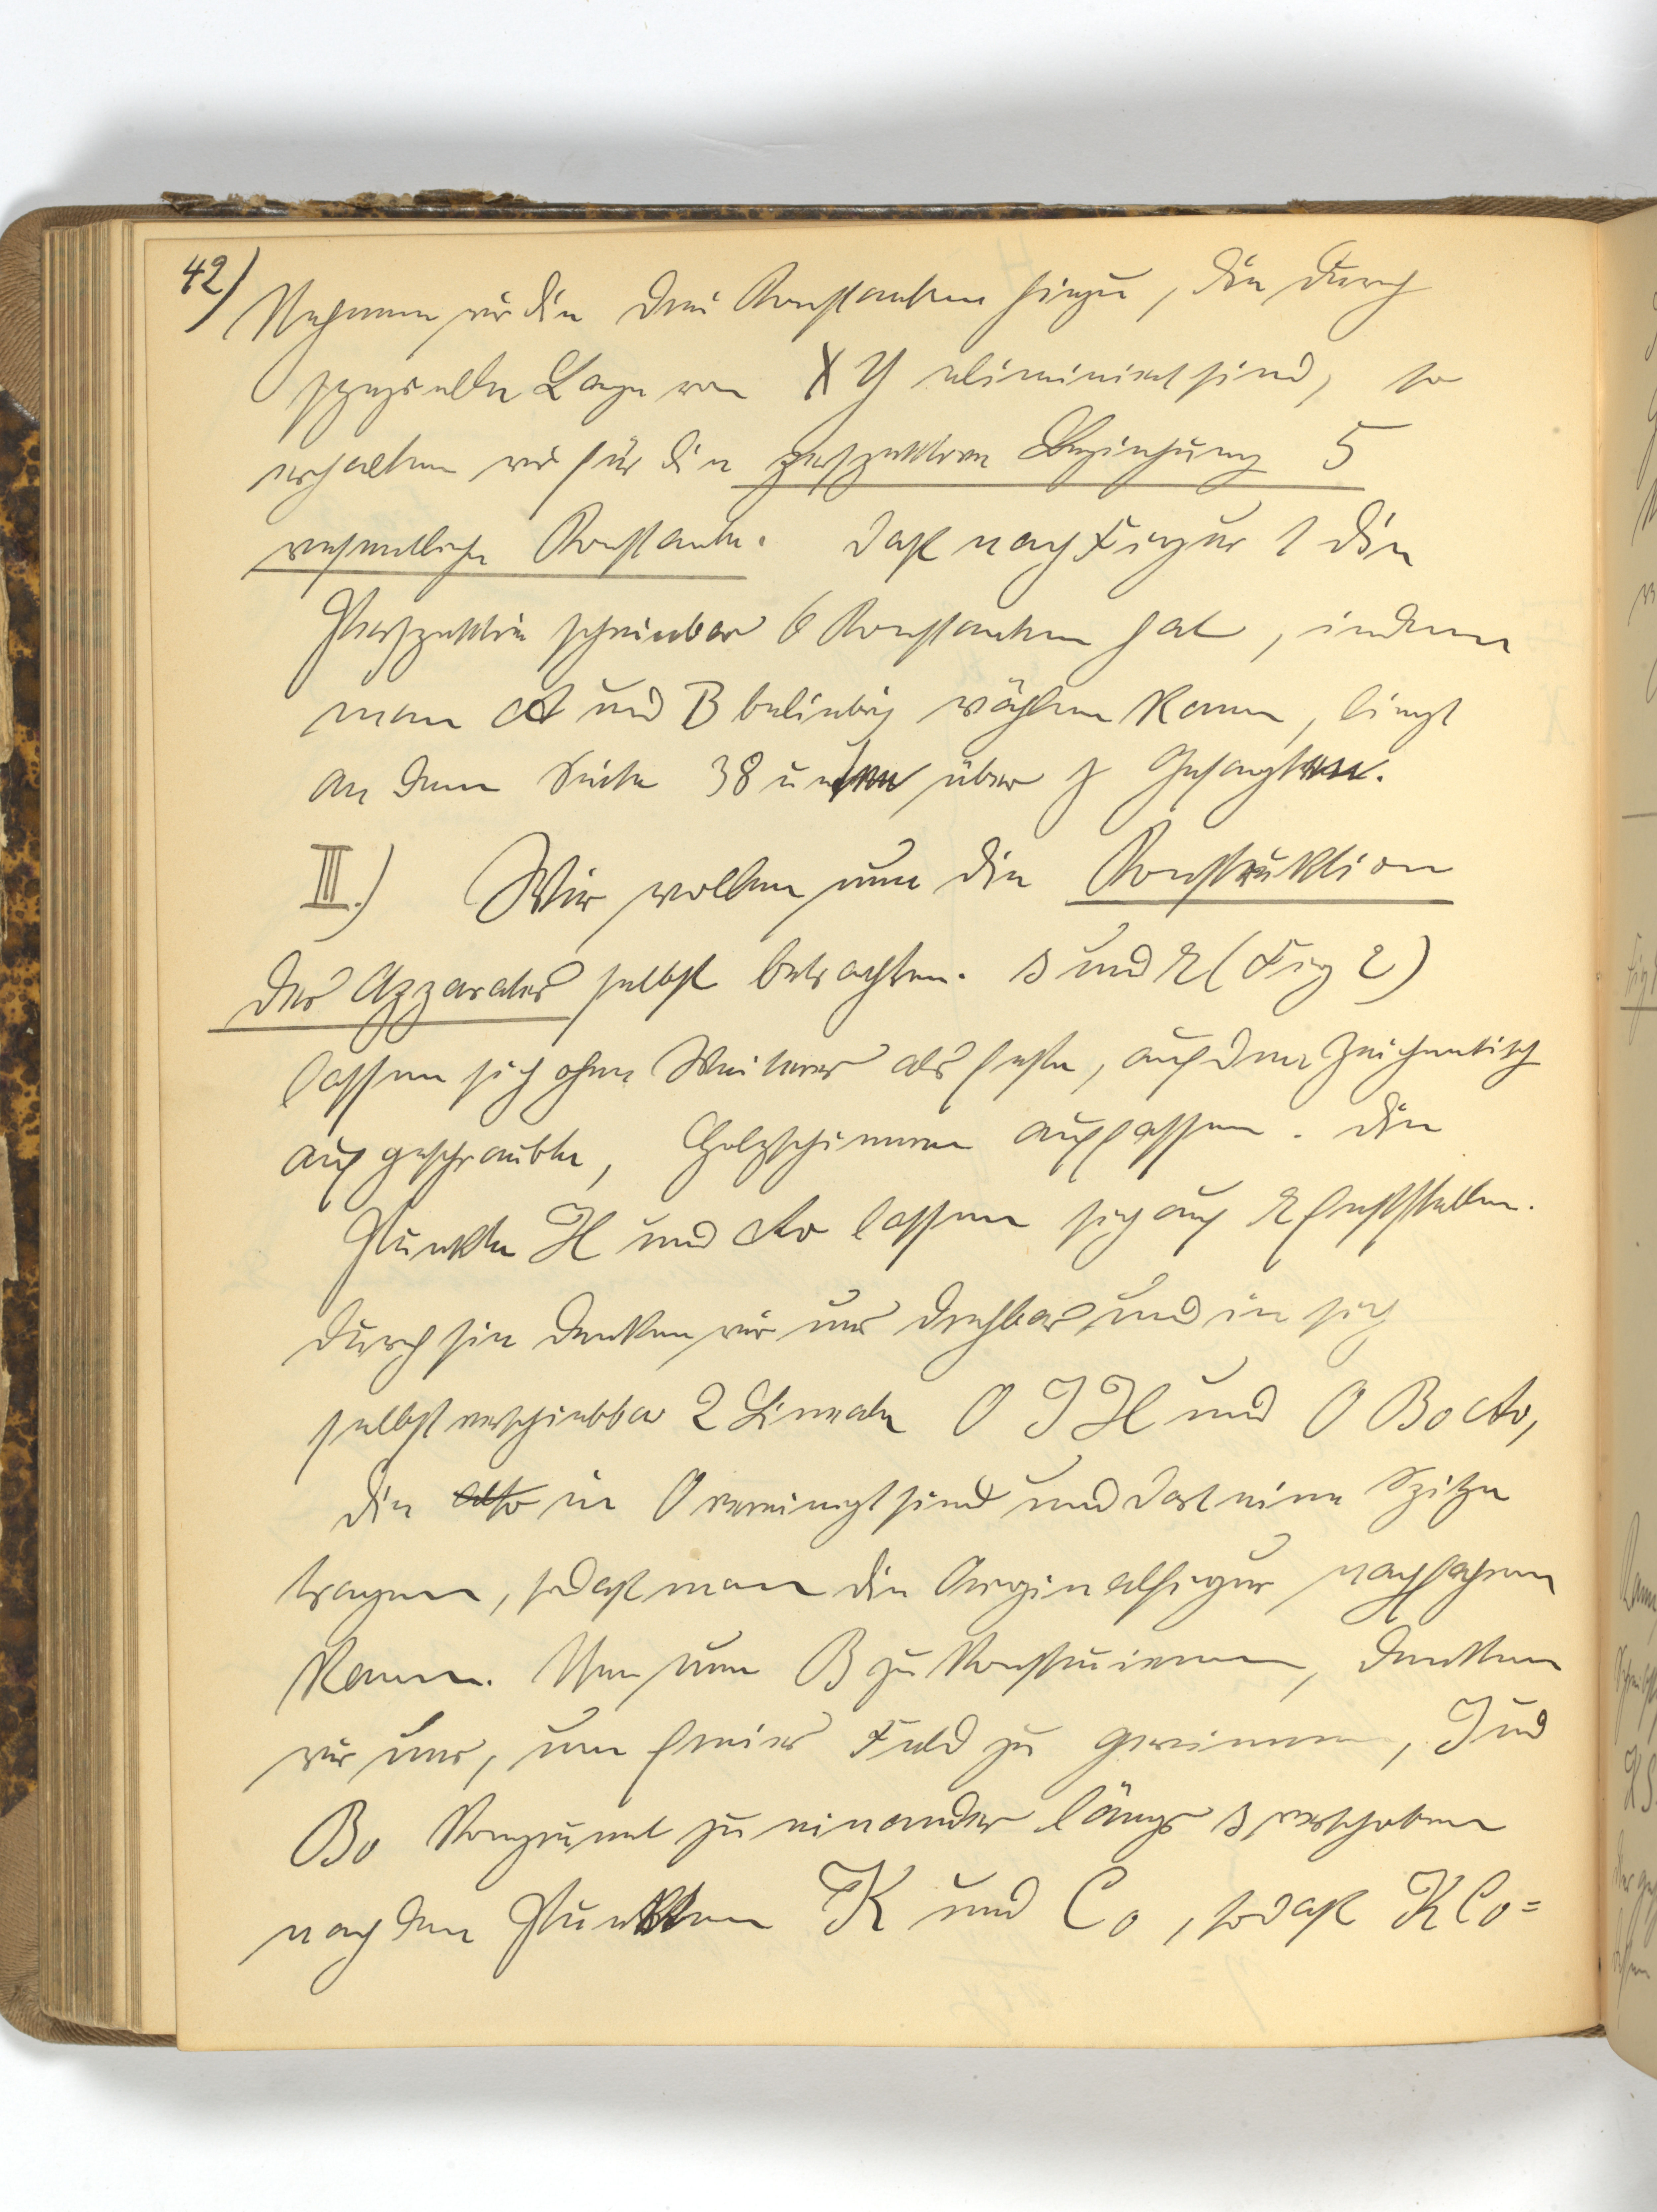 42) Nehmen wir die drei Konstanten hinzu, die durch
spezielle Lage von X Y eliminiert sind, so
erhalten wir für die perspektive Beziehung 5
wesentliche Konstante. Daß nach Figur 1 die
Perspektive scheinbar 6 Konstanten hat, indem
man A und B beliebig wählen kann, liegt
an dem Seite 38 unten über γ Gesagten.
III.) Wir wollen nun die Konstruktion
des Apparates selbst betrachten. s und r (Fig 2)
lassen sich ohne Weiteres als feste, auf dem Zeichentisch
aufgeschraubte, Holzschienen auffassen. Die
Punkte H und A0 lassen sich auf r feststellen.
Durch sie denken wir uns drehbar und in sich
selbst verschiebbar 2 Lineale O J H und O B0 A0,
die also in O vereinigt sind und dort eine Spitze
tragen, sodaß man die Originalfigur nachfahren
kann. Um nun B zu konstruieren, denken
wir uns, um freies Feld zu gewinnen, J und
B0 kongruent zu einander längs s verschoben
nach den Punkten K und C0, sodaß K C0 =